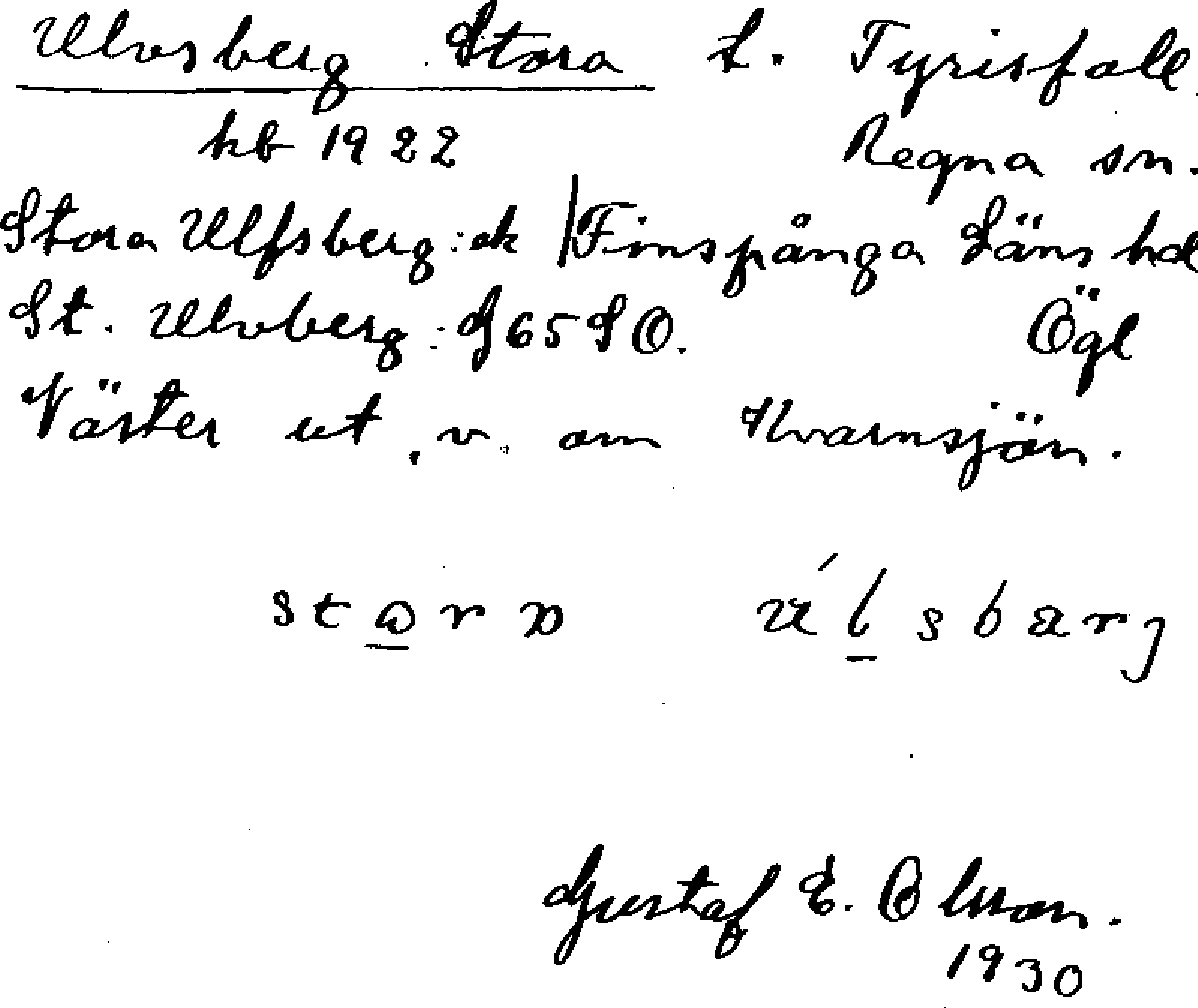 Ulvsberg Stora t. Tyrisfall
hb 1922 Regna sn.
Stora Ulfsberg: ek | Finspånga Läns hd
St. Ulvberg: G65SO. Ögl
Väster ut, v. om Kvarnsjön.
Gustaf E. Olsson.
1930